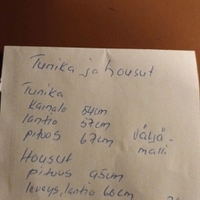 Tunika ja housut
Tunika
Kainalo 54cm
lantio 57cm
pituus 67cm
Väljä-
malli
Housut
pituus 95cm
leveys, lantio 66cm